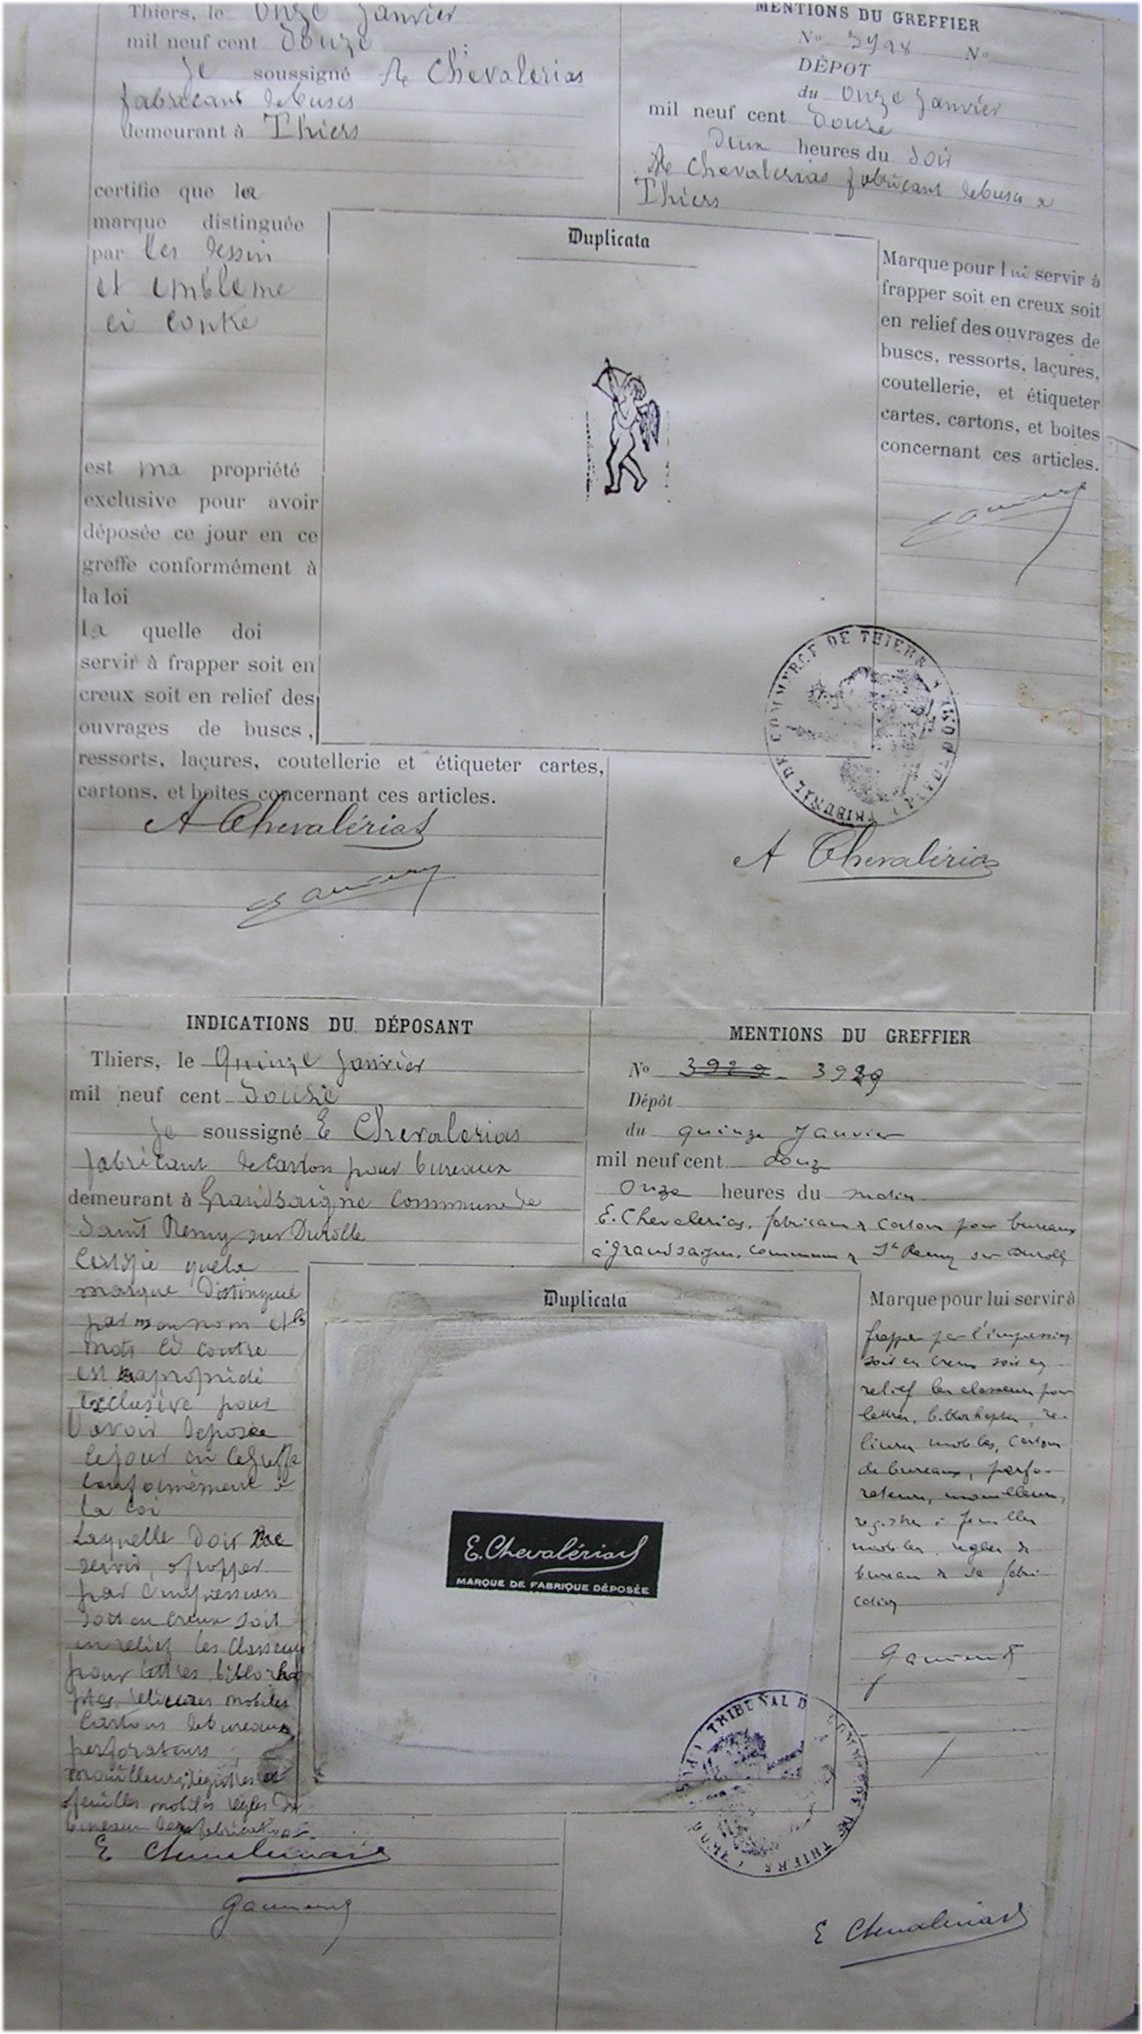 Thiers, le Onze Janvier
mil neuf cent Douze
Je soussigné A Chevalérias
fabricant de buscs
demeurant à Thiers
certifie que la
marque distinguée
par les dessin
et emblème
ci contre
est ma propriété
exclusive pour avoir
déposée ce jour en ce
greffe conformément à
la loi
la quelle doi
servir à frapper soit en
creux soit en relief des
ouvrages de buscs,
ressorts, laçures, coutellerie et étiqueter cartes,
cartons, et boîtes concernant ces articles.
A Chevalérias
MENTIONS DU GREFFIER
No 3928 No
DÉPOT
du Onze Janvier
mil neuf cent Douze
Deux heures du Soir
A Chevalérias fabricant de buscs a
Thiers
Duplicata
Marque pour lui servir à
frapper soit en creux soit
en relief des ouvrages de
buscs, ressorts, laçures,
coutellerie, et étiqueter
cartes, cartons, et boîtes
concernant ces articles.
TRIBUNAL DE COMMERCE DE THIERS
A Chevalérias
INDICATIONS DU DÉPOSANT
Thiers, le Quinze Janvier
mil neuf cent Douze
Je soussigné E Chevalérias
fabricant de carton pour bureaux
demeurant à Grandsaigne commune de
Saint Remy sur Durolle
Certifie que la
marque Distingué
par mon nom et les
mots ci contre
est ma propriété
exclusive pour
l'avoir déposée
ce jour en ce greffe
conformément à
la loi
Laquelle doit me
servir a frapper
par l'impression
soit en creux soit
en relief les classeurs
pour lettres, biblorhaptes, relieures mobiles
Cartons de bureaux
perforateurs
mouilleurs, registres a
feuilles mobiles règles de
bureaux de sa fabrication.
E Chevalérias
MENTIONS DU GREFFIER
No 3929 3929
Dépôt
du quinze Janvier
mil neuf cent douze
Onze heures du matin
E. Chevalérias, fabricant de carton pour bureaux
à Grandsaigne, commune de St Remy sur Durolle
Duplicata
E. Chevalérias
MARQUE DE FABRIQUE DÉPOSÉE
Marque pour lui servir à
frapper par l'impression
soit en creux soit en
relief les classeurs pour
lettres, biblorhaptes, re-
lieures mobiles, cartons
de bureaux, perfo-
rateurs, mouilleurs,
registres à feuilles
mobiles, règles de
bureau de sa fabri
cation
TRIBUNAL DE COMMERCE DE THIERS
E Chevalérias